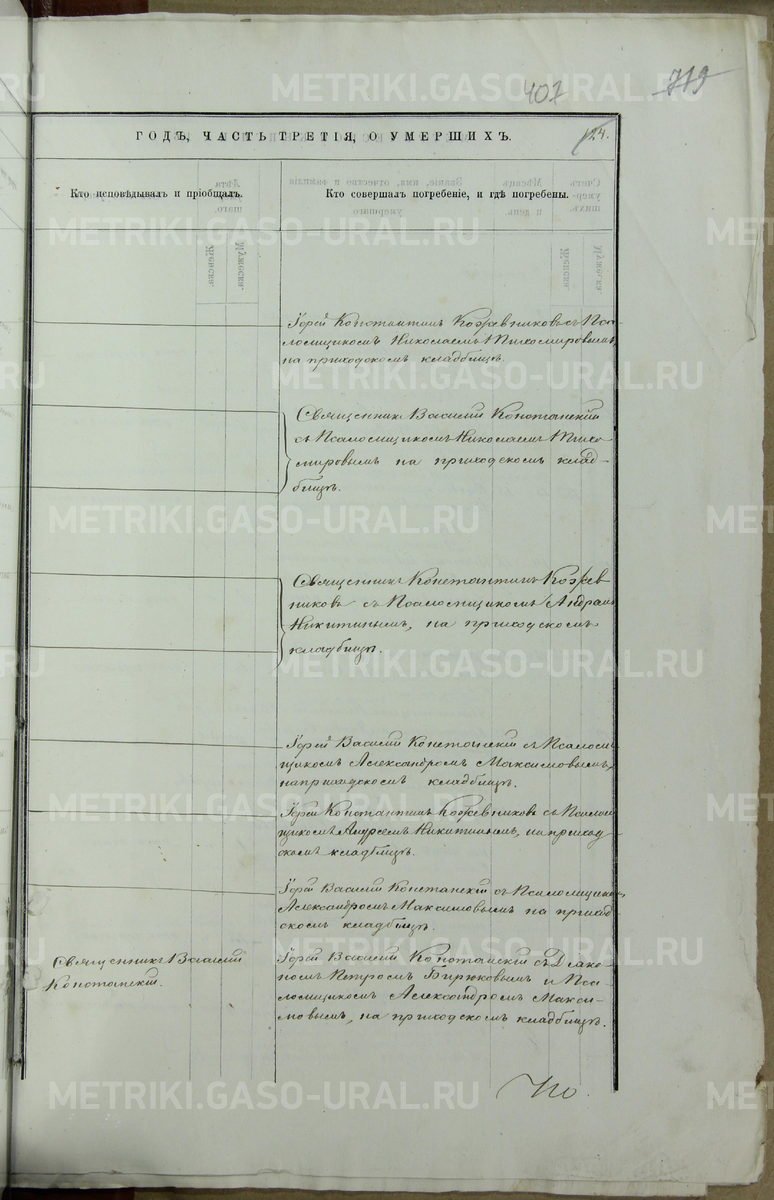 407
719
ГОДЪ, ЧАСТЬ ТРЕТІЯ, О УМЕРШИХЪ.
Кто исповѣдывалъ и пріобщалъ.
Кто совершалъ погребеніе, и гдѣ погребены.
Іерей Константинъ Кожевниковъ съ Пса-
ломщикомъ Николаемъ Тихомировымъ,
на приходскомъ кладбищѣ.
Священникъ Василій Конотанскій
съ Псаломщикомъ Николаемъ Тихо-
мировымъ на приходскомъ клад-
бищѣ.
Священникъ Константинъ Кожев
никовъ съ Псаломщикомъ Андреемъ
Никитинымъ, на приходскомъ
кладбищѣ.
Іерей Василій Конотанскій съ Псалом
щикомъ Александромъ Максимовымъ,
на приходскомъ кладбищѣ.
Іерей Константинъ Кожевниковъ съ Псалом
щикомъ Андреемъ Никитинымъ, на приход
скомъ кладбищѣ.
Іерей Василій Конотанскій съ Псаломщикомъ
Александромъ Максимовымъ на приход
скомъ кладбищѣ.
Священникъ Василій
Конотанскій.
Іерей Василій Конотанскій съ Діако-
номъ Петромъ Бирюковымъ и Пса-
ломщикомъ Александромъ Макси-
мовымъ, на приходскомъ кладбищѣ.
METRIKI.GASO-URAL.RU